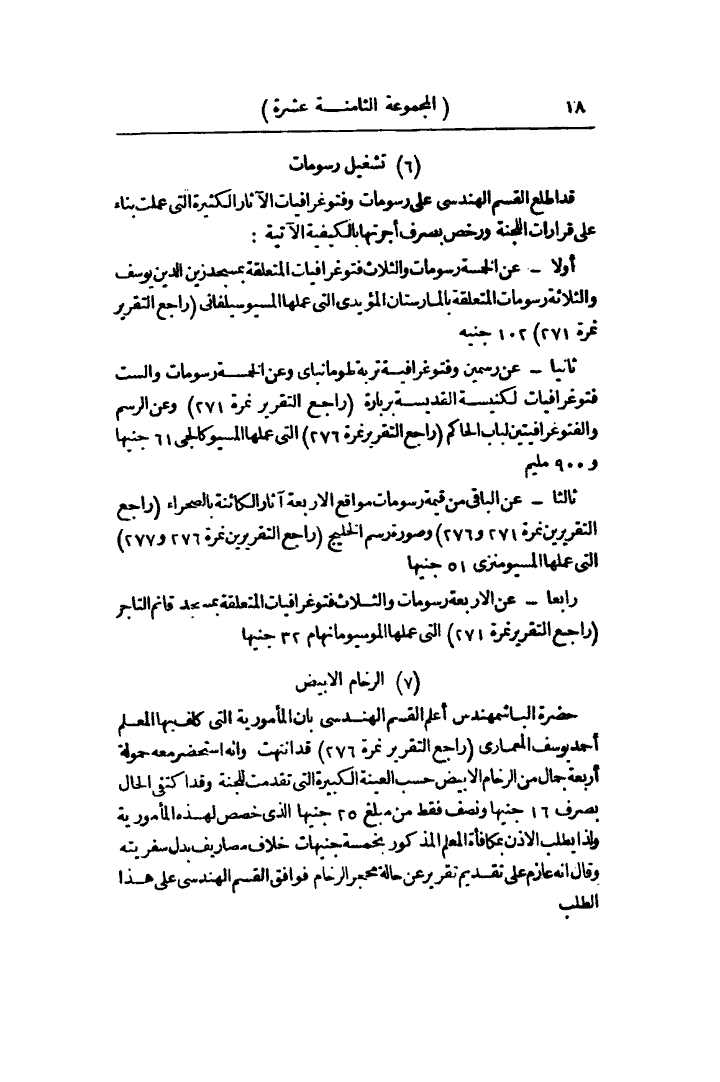 ١٨ ( المجموعة الثامنــة عشرة )
(٦) تشغيل رسومات
قد اطلع القسم الهندسى على رسومات وفتوغرافيات الآثار الكثيرة التى عملت بناء
على قرارات اللجنة ورخص بصرف أجرتها بالكيفية الآتية :
أولا - عن الخمسة رسومات والثلاث فتوغرافيات المتعلقة بمسجد زين الدين يوسف
والثلاثة رسومات المتعلقة بالمارستان المؤيدى التى عملها المسيو سيلفانى (راجع التقرير
نمرة ٢٧١) ١٠٢ جنيه
ثانيا - عن رسمين وفتوغرافيــة تربة طومانباى وعن الخمســة رسومات والست
فتوغرافيات لكنيســة القديســة بربارة (راجـع التقرير نمرة ٢٧١) وعن الرسم
والفتوغرافيتين لباب الحاكم (راجع التقرير نمرة ٢٧٦) التى عملها المسيو كالجى ٦١ جنيها
و ٩٠٠ مليم
ثالثا - عن الباقى من قيمة رسومات مواقع الاربعة آثار الكائنة بالصحراء (راجع
التقريرين نمرة ٢٧١ و٢٧٦) وصورة رسم الخليج (راجع التقريرين نمرة ٢٧٦ و٢٧٧)
التى عملها المسيو منزى ٥١ جنيها
رابعا - عن الاربعة رسومات والثــلاث فتوغرافيات المتعلقة بمسجد قانم التاجر
(راجع التقرير نمرة ٢٧١) التى عملها الموسيو مانهام ٣٢ جنيها
(٧) الرخام الابيض
حضرة الباشمهندس أعلم القسم الهنــدسى بان المأمورية التى كلف بها المعــلم
أحمد يوسف المعمارى (راجع التقرير نمرة ٢٧٦) قد انتهت وانه استحضر معه حمولة
أربعة جمال من الرخام الابيض حسب العينة الكبيرة التى تقدمت للجنة وقد اكتفى الحال
بصرف ١٦ جنيها ونصف فقط من مبلغ ٢٥ جنيها الذى خصص لهــذه المأمورية
ولذا يطلب الاذن بمكافأة المعلم المذكور بخمسة جنيهات خلاف مصاريف بدل سفريته
وقال انه عازم على تقــديم تقرير عن حالة محجر الرخام فوافق القسم الهندسى على هــذا
الطلب